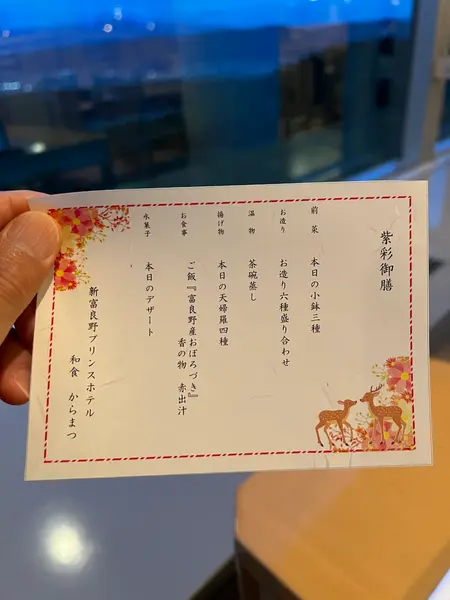 紫彩御膳
前菜 本日の小鉢三種
お造り お造り六種盛り合わせ
温物 茶碗蒸し
揚げ物 本日の天婦羅四種
お食事 ご飯『富良野産おぼろづき』
香の物 赤出汁
水菓子 本日のデザート
新富良野プリンスホテル
和食 からまつ